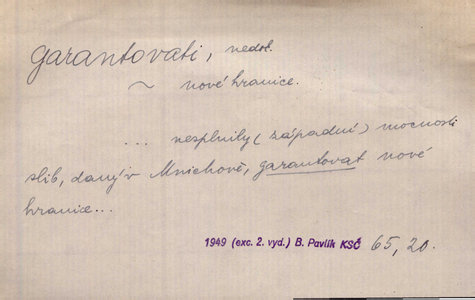 garantovati, nedok.
~ nové hranice.
... nesplnily (západní) mocnosti
slib, daný v Mnichově, garantovat nové
hranice...
1949 (exc. 2. vyd.) B. Pavlík KSČ 65, 20.